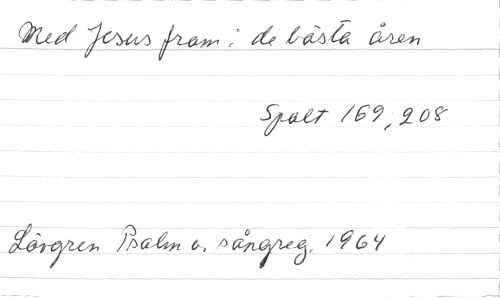 Med Jesus fram i de bästa åren
Spalt 169, 208
Lövgren Psalm o. sångreg. 1964